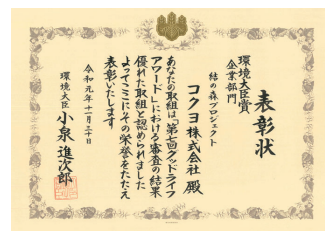 表彰状
環境大臣賞
企業部門
結の森プロジェクト
コクヨ株式会社 殿
あなたの取組は「第七回グッドライフ
アワード」における審査の結果
優れた取組と認められました
よってここにその栄誉をたたえ
表彰いたします
令和元年十一月三十日
環境大臣 小泉進次郎